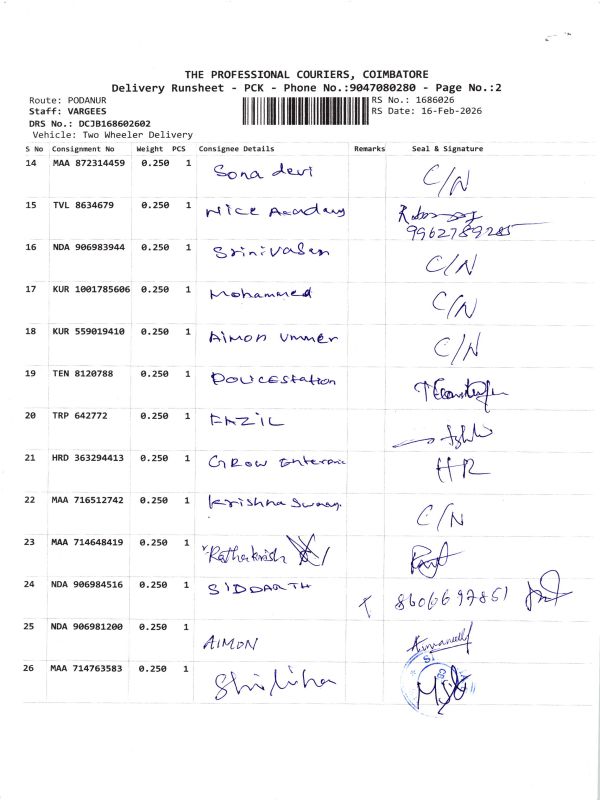 THE PROFESSIONAL COURIERS, COIMBATORE
Delivery Runsheet - PCK - Phone No.:9047080280 - Page No.:2
Route: PODANUR RS No.: 1686026
Staff: VARGEES RS Date: 16-Feb-2026
DRS No.: DCJB168602602
Vehicle: Two Wheeler Delivery
S No Consignment No Weight PCS Consignee Details Remarks Seal & Signature
14 MAA 872314459 0.250 1 Sona devi C/N
15 TVL 8634679 0.250 1 Nice Academy 9962789285
16 NDA 906983944 0.250 1 Srinivasan C/N
17 KUR 1001785606 0.250 1 Mohammed C/N
18 KUR 559019410 0.250 1 Aimon Ummer C/N
19 TEN 8120788 0.250 1 Policestation
20 TRP 642772 0.250 1 FAZIL
21 HRD 363294413 0.250 1 Grow Enterprise HR
22 MAA 716512742 0.250 1 Krishna Swamy C/N
23 MAA 714648419 0.250 1 Rathakrish
24 NDA 906984516 0.250 1 SIDDARTH 8606697851
25 NDA 906981200 0.250 1 AIMON
26 MAA 714763583 0.250 1